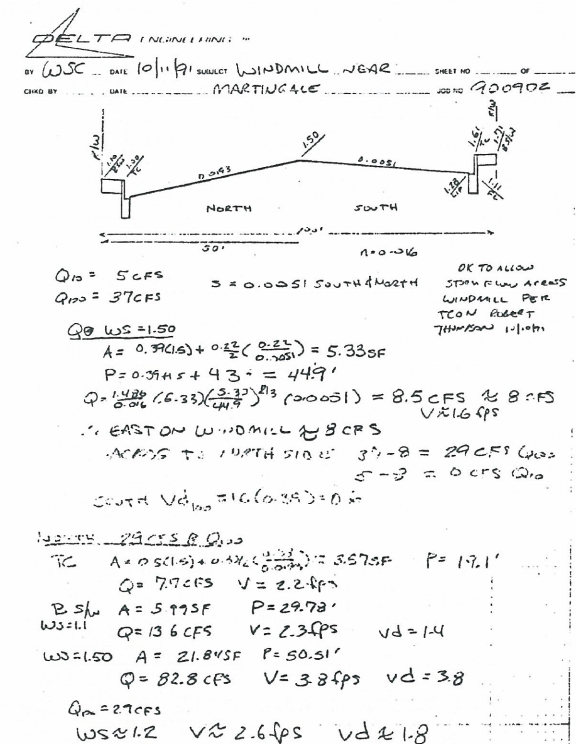 DELTA ENGINEERING INC
BY WSC DATE 10/11/91 SUBJECT WINDMILL NEAR SHEET NO. OF
CHKD BY DATE MARTINGALE JOB NO. 900902
R/W
B S/W
TC
0.0193
1.50
0.0051
1.61
TC
1.71
B S/W
R/W
1.28
LIP
1.11
FL
NORTH SOUTH
100'
50' n=0.016
Q10 = 5 CFS
Q100 = 37 CFS
S = 0.0051 SOUTH & NORTH
OK TO ALLOW
STORM FLOW ACROSS
WINDMILL PER
TCON ROBERT
THOMPSON
Q@ WS = 1.50
A = 0.39(1.5) + 0.22/2 (0.22/0.0051) = 5.33 SF
P = 0.39+1.5 + 43 = 44.9'
Q = 1.486/0.016 (5.33)(5.33/44.9)^2/3 (0.0051) = 8.5 CFS ≈ 8 CFS
V≈1.6 fps
∴ EAST ON WINDMILL ≈ 8 CFS
ACROSS TO NORTH SIDE 37-8 = 29 CFS Q100
5-8 = 0 CFS Q10
SOUTH Vd100 = 1.6(0.39) = 0.6
NORTH 29 CFS @ Q100
TC A = 0.5(1.5) + = 3.57 SF P = 19.1'
Q = 7.7 CFS V = 2.2 fps
B S/W A = 5.99 SF P = 29.78'
WS=1.1 Q = 13.6 CFS V = 2.3 fps vd = 1.4
WS=1.50 A = 21.84 SF P = 50.51'
Q = 82.8 CFS V = 3.8 fps vd = 3.8
Q100 = 29 CFS
WS ≈ 1.2 V ≈ 2.6 fps vd ≈ 1.8